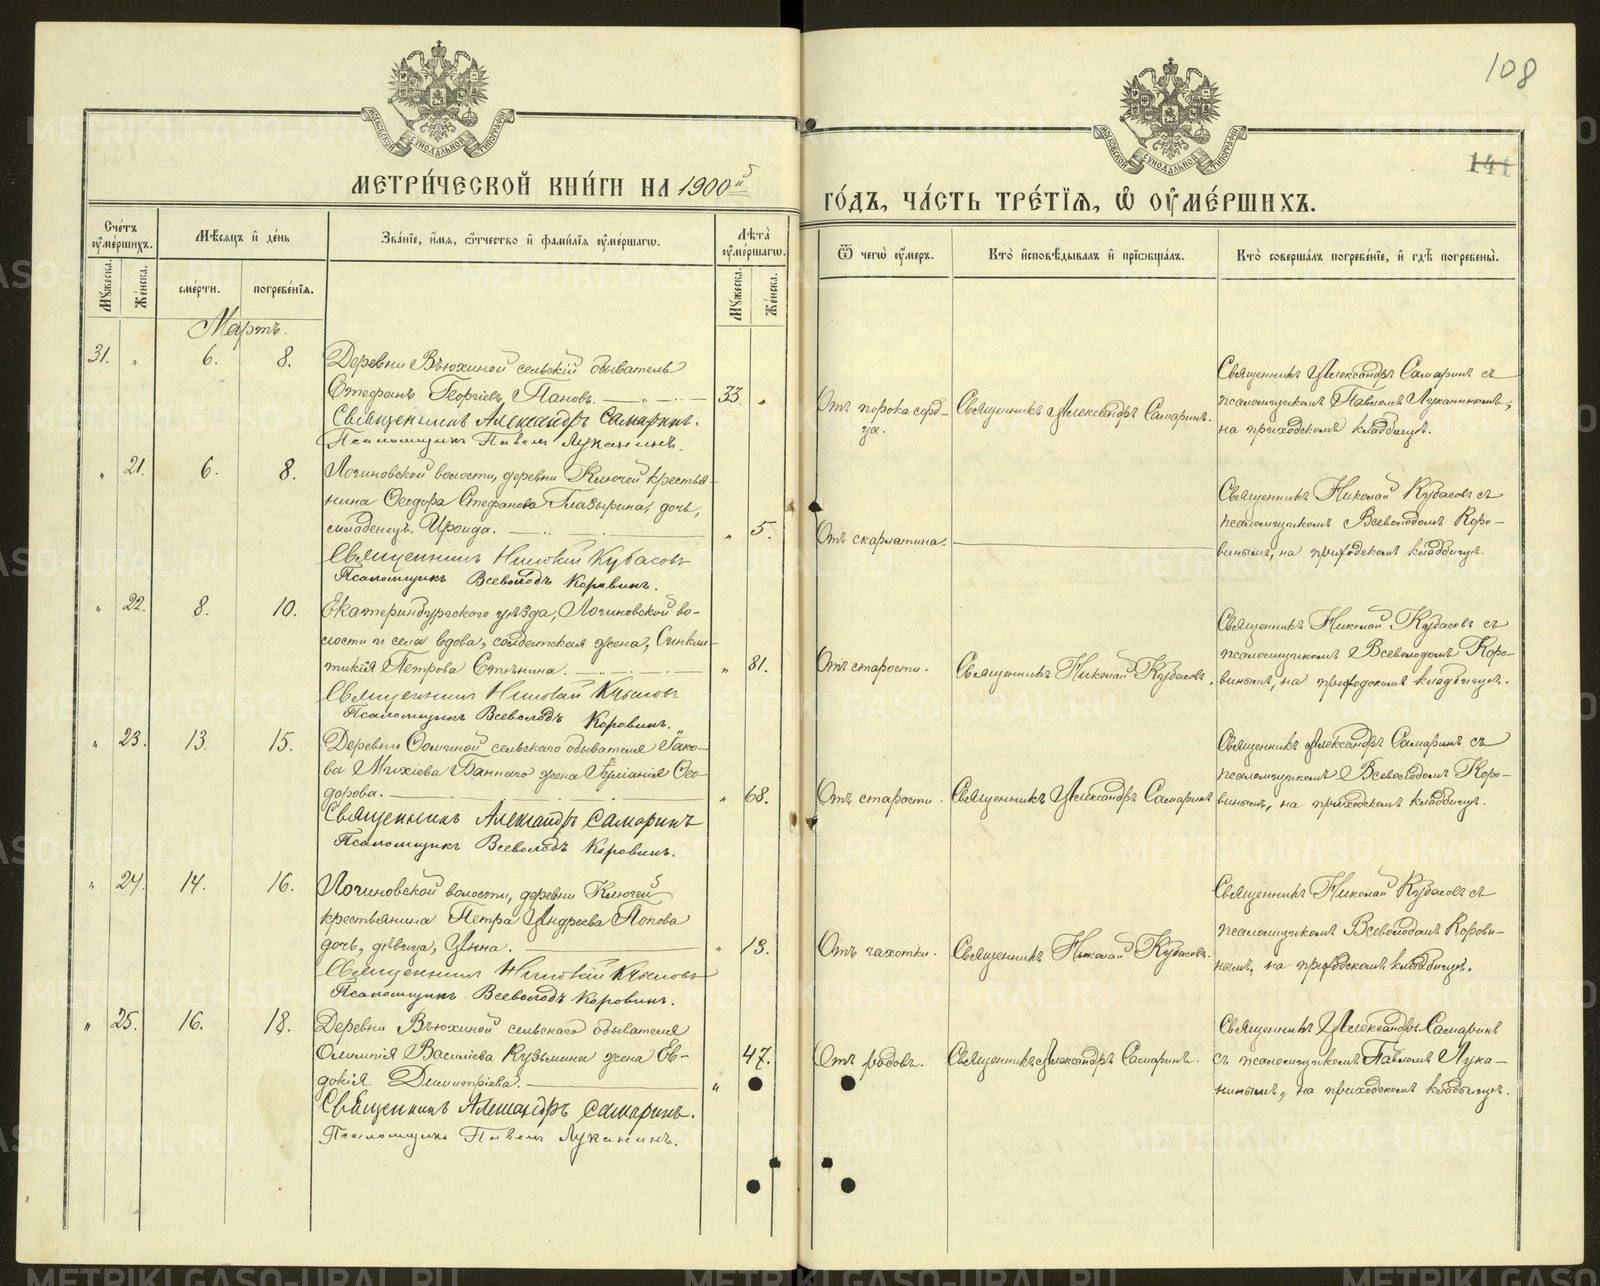 108
141
МОСКОВСКОЙ СѴНОДАЛЬНОЙ ТИПОГРАФІИ
МОСКОВСКОЙ СѴНОДАЛЬНОЙ ТИПОГРАФІИ
МЕТРИ́ЧЕСКОЙ КНИ́ГИ НА 1900й
ГО́ДЪ, ЧА́СТЬ ТРЕ́ТІѦ, Ѡ҆ ОУ҆МЕ́РШИХЪ.
Сче́тъ оу҆ме́ршихъ.
Мѣ́сяцъ и҆ де́нь
Зва́нїе, и҆́мя, ѻ҆́тчество и҆ фами́лїя оу҆ме́ршагѡ.
Лѣта̀ оу҆ме́ршагѡ.
Ѿ чегѡ̀ оу҆́меръ.
Кто̀ и҆сповѣ́дывалъ и҆ прїѡбща́лъ.
Кто̀ соверша́лъ погребе́нїе, и҆ гдѣ̀ погребены̀.
Мꙋ́жеска.
Же́нска.
сме́рти.
погребе́нїя.
Мꙋ́жеска.
Же́нска.
Мартъ.
31. " 6. 8. Деревни Вьюхиной сельскій обыватель
Стефанъ Георгіевъ Пановъ. 33 "
Священникъ Александръ Самаринъ.
Псаломщикъ Павелъ Луканинъ.
Отъ порока серд-
ца.
Священникъ Александръ Самаринъ.
Священникъ Александръ Самаринъ съ
псаломщикомъ Павломъ Луканинымъ,
на приходскомъ кладбищѣ.
" 21. 6. 8. Логиновской волости, деревни Ключей крестья-
нина Ѳеодора Стефанова Глазырина, дочь,
младенецъ, Ираида. " 5.
Священникъ Николай Кубасовъ
Псаломщикъ Всеволодъ Коровинъ.
Отъ скарлатина.
Священникъ Николай Кубасовъ съ
псаломщикомъ Всеволодомъ Коро-
винымъ, на приходскомъ кладбищѣ.
" 22. 8. 10. Екатеринбургскаго уѣзда, Логиновской во-
лости и села вдова, солдатская жена, Синкли-
тикія Петрова " 81.
Священникъ Николай Кубасовъ
Псаломщикъ Всеволодъ Коровинъ.
Отъ старости.
Священникъ Николай Кубасовъ.
Священникъ Николай Кубасовъ съ
псаломщикомъ Всеволодомъ Коро-
винымъ, на приходскомъ кладбищѣ.
" 23. 13. 15. Деревни сельскаго обывателя Іако-
ва жена Іуліанія Ѳео-
дорова. " 68.
Священникъ Александръ Самаринъ
Псаломщикъ Всеволодъ Коровинъ.
Отъ старости.
Священникъ Александръ Самаринъ
Священникъ Александръ Самаринъ съ
псаломщикомъ Всеволодомъ Коро-
винымъ, на приходскомъ кладбищѣ.
" 24. 14. 16. Логиновской волости, деревни Ключей
крестьянина Петра Андреева Попова
дочь, дѣвица, Анна. " 13.
Священникъ Николай Кубасовъ
Псаломщикъ Всеволодъ Коровинъ.
Отъ чахотки.
Священникъ Николай Кубасовъ.
Священникъ Николай Кубасовъ съ
псаломщикомъ Всеволодомъ Корови-
нымъ, на приходскомъ кладбищѣ.
" 25. 16. 18. Деревни Вьюхиной сельскаго обывателя
Олимпія Василіева Кузьмина жена Ев-
докія Димитріева. " 47.
Священникъ Александръ Самаринъ.
Псаломщикъ Павелъ Луканинъ.
Отъ родовъ.
Священникъ Александръ Самаринъ.
Священникъ Александръ Самаринъ
съ псаломщикомъ Павломъ Лука-
нинымъ, на приходскомъ кладбищѣ.
METRIKI.GASO-URAL.RU